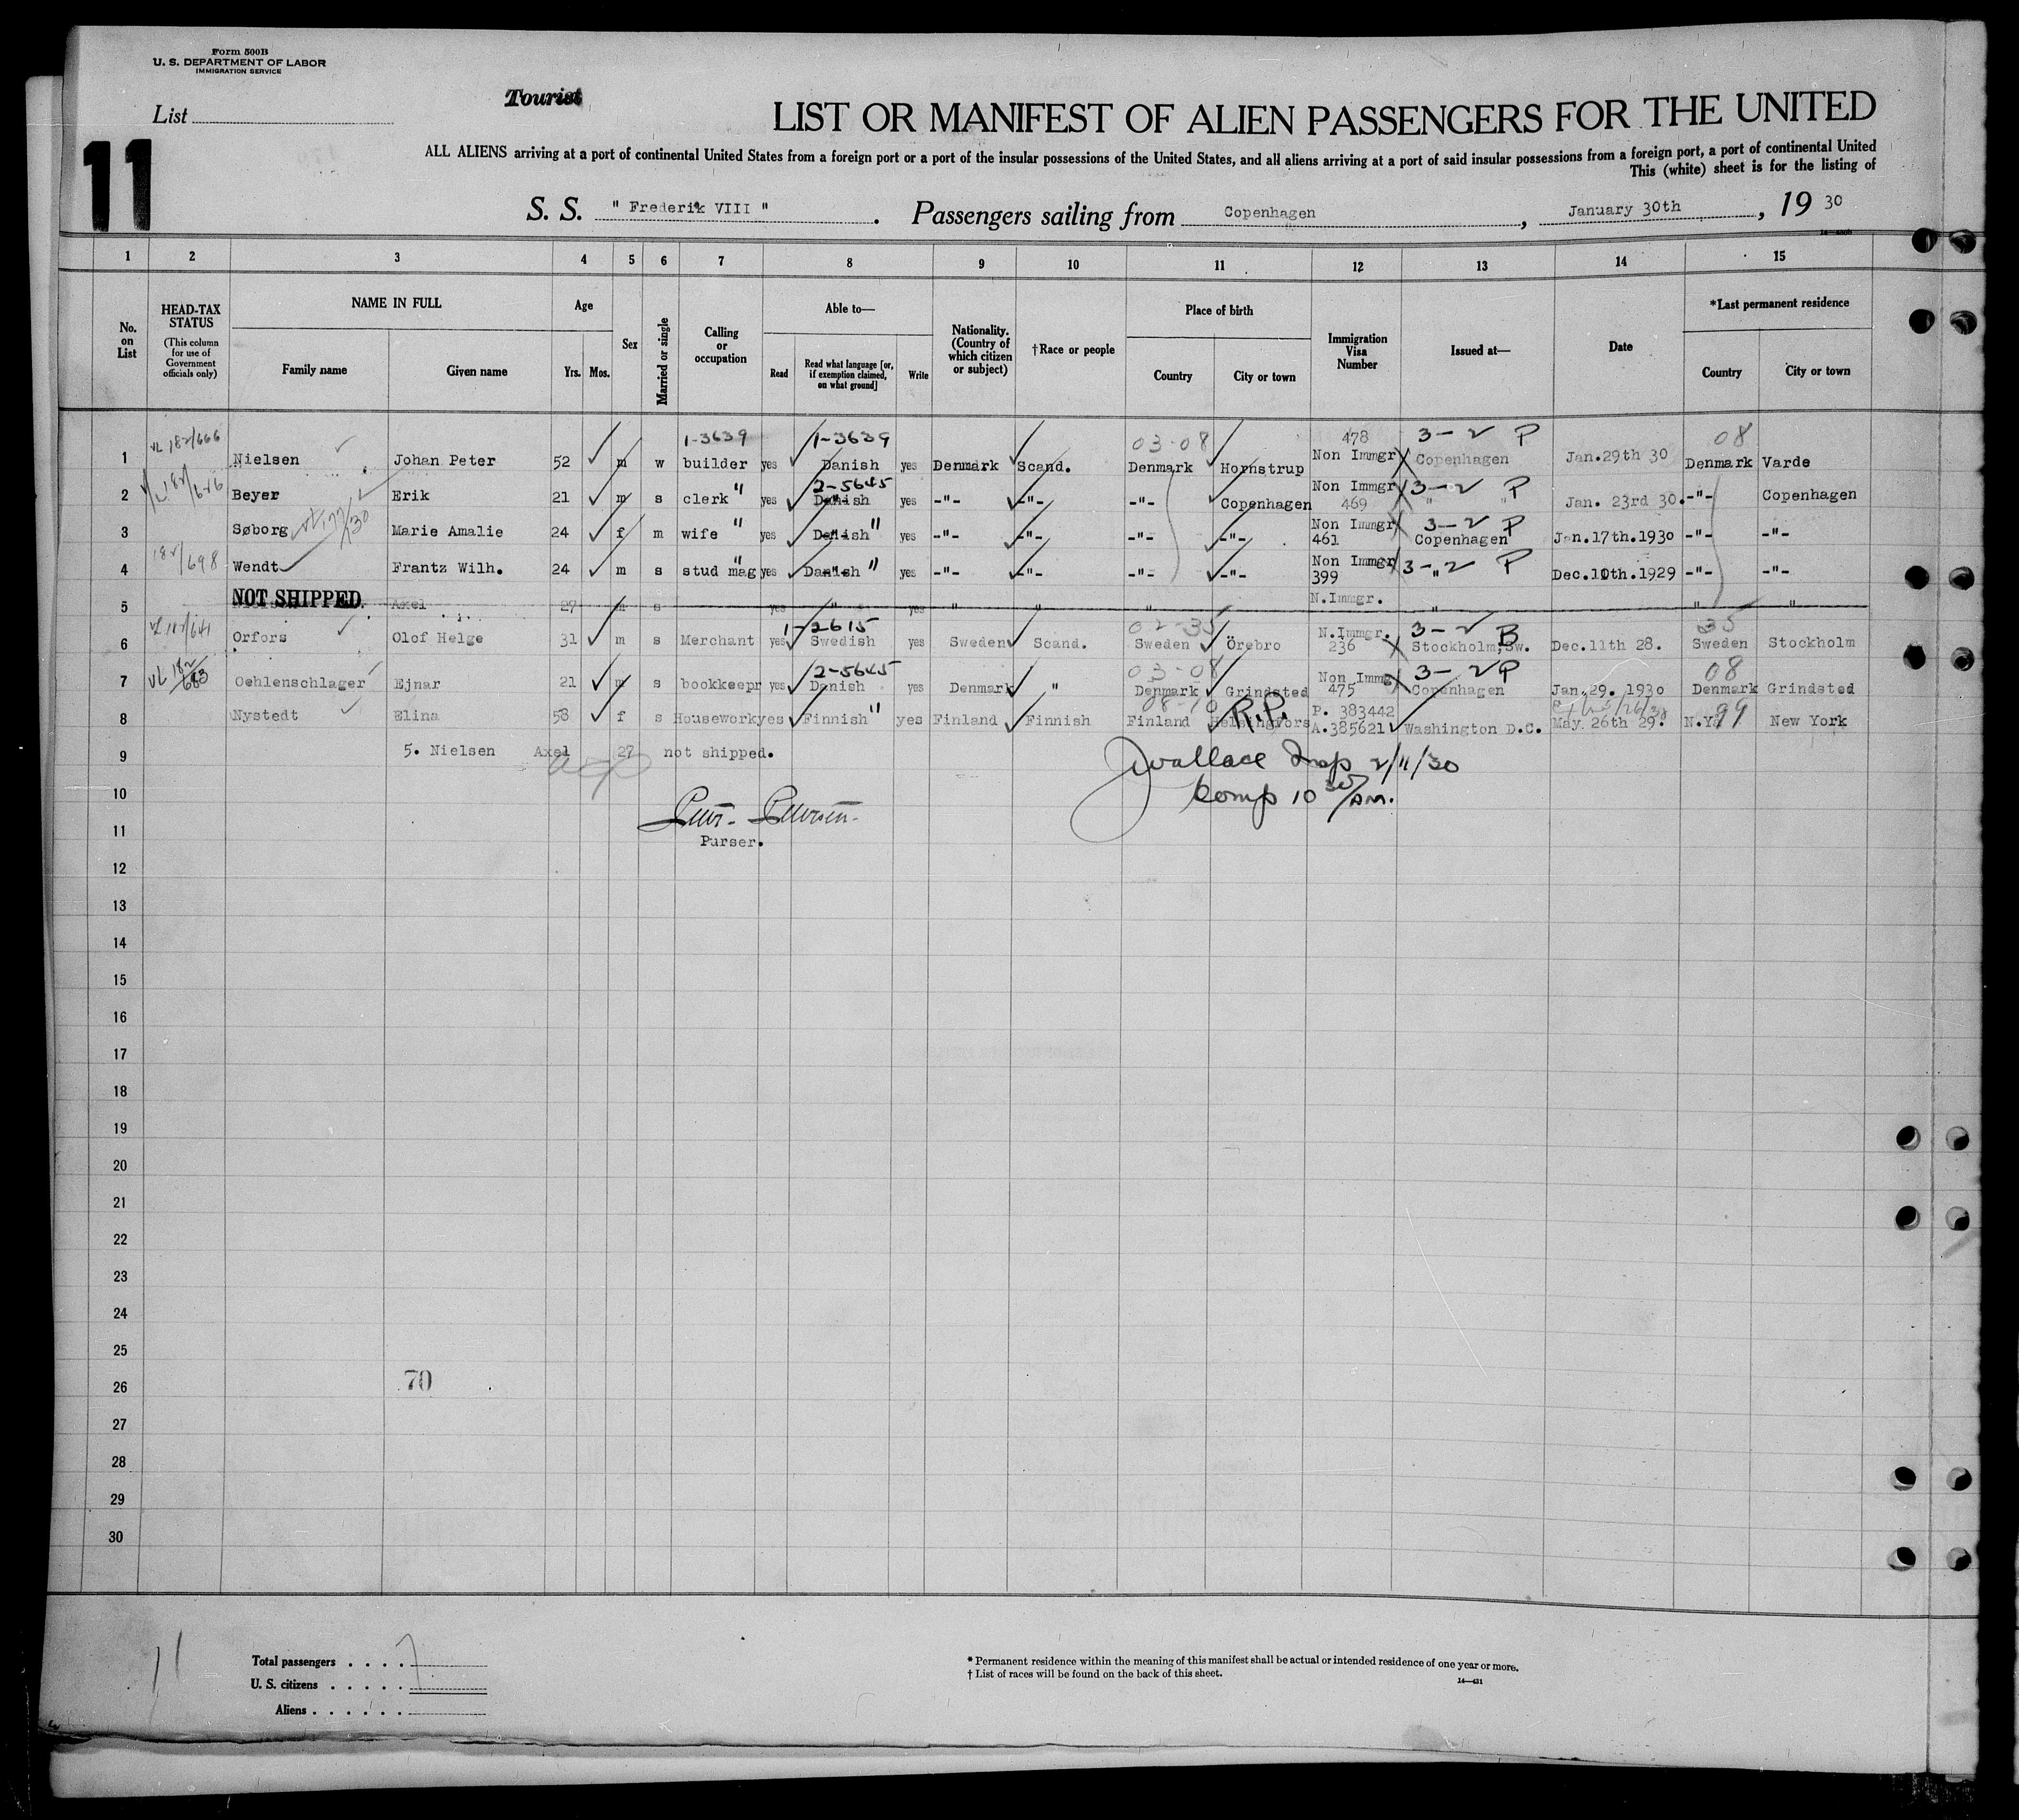 Form 500B
U. S. DEPARTMENT OF LABOR
IMMIGRATION SERVICE
List
Tourist
11
LIST OR MANIFEST OF ALIEN PASSENGERS FOR THE UNITED
ALL ALIENS arriving at a port of continental United States from a foreign port or a port of the insular possessions of the United States, and all aliens arriving at a port of said insular possessions from a foreign port, a port of continental United
This (white) sheet is for the listing of
S. S. " Frederik VIII " . Passengers sailing from Copenhagen , January 30th , 19 30
1 2 3 4 5 6 7 8 9 10 11 12 13 14 15
No. on List
HEAD-TAX STATUS
(This column for use of Government officials only)
NAME IN FULL
Family name
Given name
Age
Yrs. Mos.
Sex
Married or single
Calling or occupation
Able to—
Read
Read what language [or, if exemption claimed, on what ground]
Write
Nationality. (Country of which citizen or subject)
†Race or people
Place of birth
Country
City or town
Immigration Visa Number
Issued at—
Date
*Last permanent residence
Country
City or town
182/666 1-3639 1-3639 03-08 478 3-2 P 08
1 Nielsen Johan Peter 52 m w builder yes Danish yes Denmark Scand. Denmark Hornstrup Non Immgr Copenhagen Jan.29th 30 Denmark Varde
182/646 2-5645 Non Immgr 3-2 P
2 Beyer Erik 21 m s clerk " yes Danish yes -"- -"- -"- Copenhagen 469 " " Jan. 23rd 30. -"- Copenhagen
Non Immgr 3-2 P
3 Søborg Marie Amalie 24 f m wife " yes Danish " yes -"- -"- -"- -"- 461 Copenhagen Jan.17th.1930 -"- -"-
182/698 Non Immgr 3-2 P
4 Wendt Frantz Wilh. 24 m s stud mag " yes Danish " yes -"- -"- -"- -"- 399 " Dec.10th.1929 -"- -"-
NOT SHIPPED. N.Immgr.
5 Axel 27 m s yes " yes " " " " " "
182/641 1-2615 02-35 N.Immgr. 3-2 B 35
6 Orfors Olof Helge 31 m s Merchant yes Swedish yes Sweden Scand. Sweden Örebro 236 Stockholm,Sw. Dec.11th 28. Sweden Stockholm
182/683 2-5645 03-08 Non Immg 3-2 P 08
7 Oehlenschlager Ejnar 21 m s bookkeepr yes Danish yes Denmark " Denmark Grindsted 475 Copenhagen Jan.29. 1930 Denmark Grindsted
08-10 R.P. P. 383442 99
8 Nystedt Elina 58 f s Housework yes Finnish " yes Finland Finnish Finland Helsingfors A.385621 Washington D.C. May 26th 29. N.Y. New York
9 5. Nielsen Axel 27 not shipped.
Wallace Insp 2/11/30
10
Comp 10 30/am.
11
Purser.
12
13
14
15
16
17
18
19
20
21
22
23
24
25
26 70
27
28
29
30
11
Total passengers . . . . 7
U. S. citizens . . . . .
Aliens . . . . . .
* Permanent residence within the meaning of this manifest shall be actual or intended residence of one year or more.
† List of races will be found on the back of this sheet.
14—431